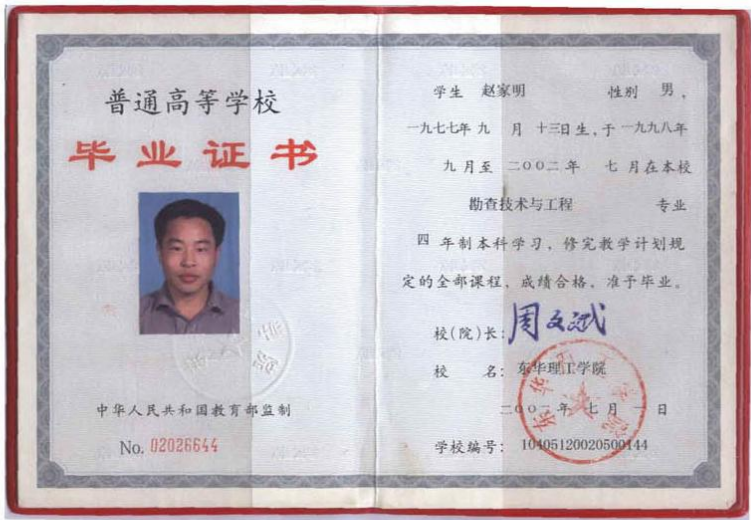 普通高等学校
毕业证书
中华人民共和国教育部监制
No. 02026644
学生 赵家明 性别 男、
一九七七年九 月 十三日生,于一九九八年
九月至 二〇〇二年 七 月在本校
勘查技术与工程 专业
四 年制本科学习、修完教学计划规
定的全部课程、成绩合格、准予毕业。
校(院)长:周文斌
校 名:东华理工学院
二〇〇二年 七 月 一 日
学校编号: 10405120020500144